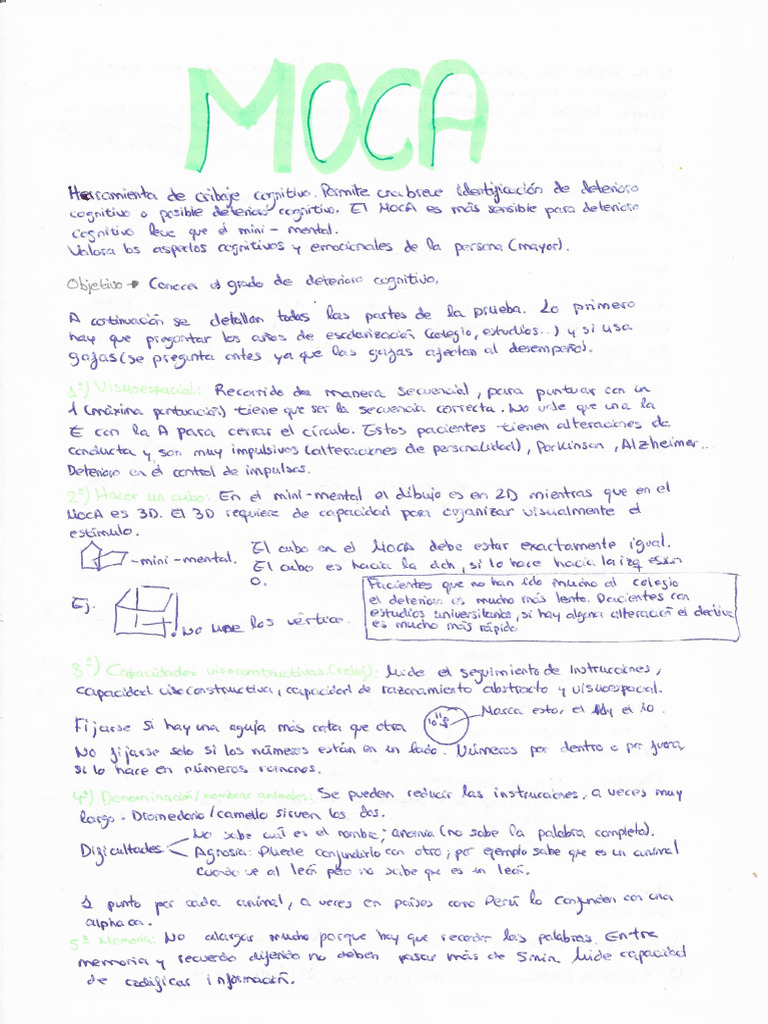 MOCA
Herramienta de cribaje cognitivo. Permite una breve identificación de deterioro
cognitivo o posible deterioro cognitivo. El MOCA es más sensible para deterioro
cognitivo leve que el mini-mental.
Valora los aspectos cognitivos y emocionales de la persona (mayor).
Objetivo → Conocer el grado de deterioro cognitivo.
A continuación se detallan todas las partes de la prueba. Lo primero
hay que preguntar los años de escolarización (colegio, estudios...) y si usa
gafas (se pregunta antes ya que las gafas afectan al desempeño).
1º) Visuoespacial: Recorrido de manera secuencial, para puntuar con un
1 (máxima puntuación) tiene que ser la secuencia correcta. No vale que una la
E con la A para cerrar el círculo. Estos pacientes tienen alteraciones de
conducta y son muy impulsivos (alteraciones de personalidad), Parkinson, Alzheimer...
Deterioro en el control de impulsos.
2º) Hacer un cubo: En el mini-mental el dibujo es en 2D mientras que en el
MOCA es 3D. El 3D requiere de capacidad para organizar visualmente el
estímulo.
-mini-mental.
El cubo en el MOCA debe estar exactamente igual.
El cubo es hacia la dch, si lo hace hacia la izq es un
0.
Ej.
No une los vértice.
Pacientes que no han ido mucho al colegio
el deterioro es mucho más lento. Pacientes con
estudios universitarios, si hay alguna alteración el declive
es mucho más rápido
3º) Capacidades visoconstructivas (reloj): Mide el seguimiento de instrucciones,
capacidad visoconstructiva, capacidad de razonamiento abstracto y visuoespacial.
Fijarse si hay una aguja más corta que otra
10 11
Marca esto, el 11 y el 10.
No fijarse solo si los números están en un lado. Números por dentro o por fuera
si lo hace en números romanos.
4º) Denominación/nombrar animales: Se pueden reducir las instrucciones, a veces muy
largo. Dromedario/camello sirven los dos.
Dificultades
No sabe cuál es el nombre; anomia (no sabe la palabra completa).
Agnosia: Puede confundirlo con otro; por ejemplo sabe que es un animal
cuando ve al león pero no sabe que es un león.
1 punto por cada animal, a veces en países como Perú lo confunden con una
alphaca.
5º Memoria: No alargar mucho porque hay que recordar las palabras. Entre
memoria y recuerdo diferido no deben pasar más de 5min. Mide capacidad
de codificar información.